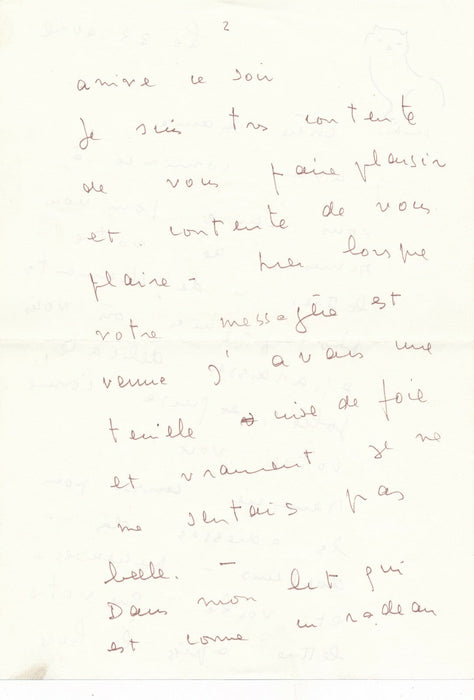 2
arrive ce soir
Je suis trs contente
de vous faire plaisir
et contente de vous
plaire - hier lorsque
votre messagère est
venue J'avais une
terrible crise de foie
et vraiment je ne
me sentais pas
belle. -
Dans mon lit qui
est comme un radeau